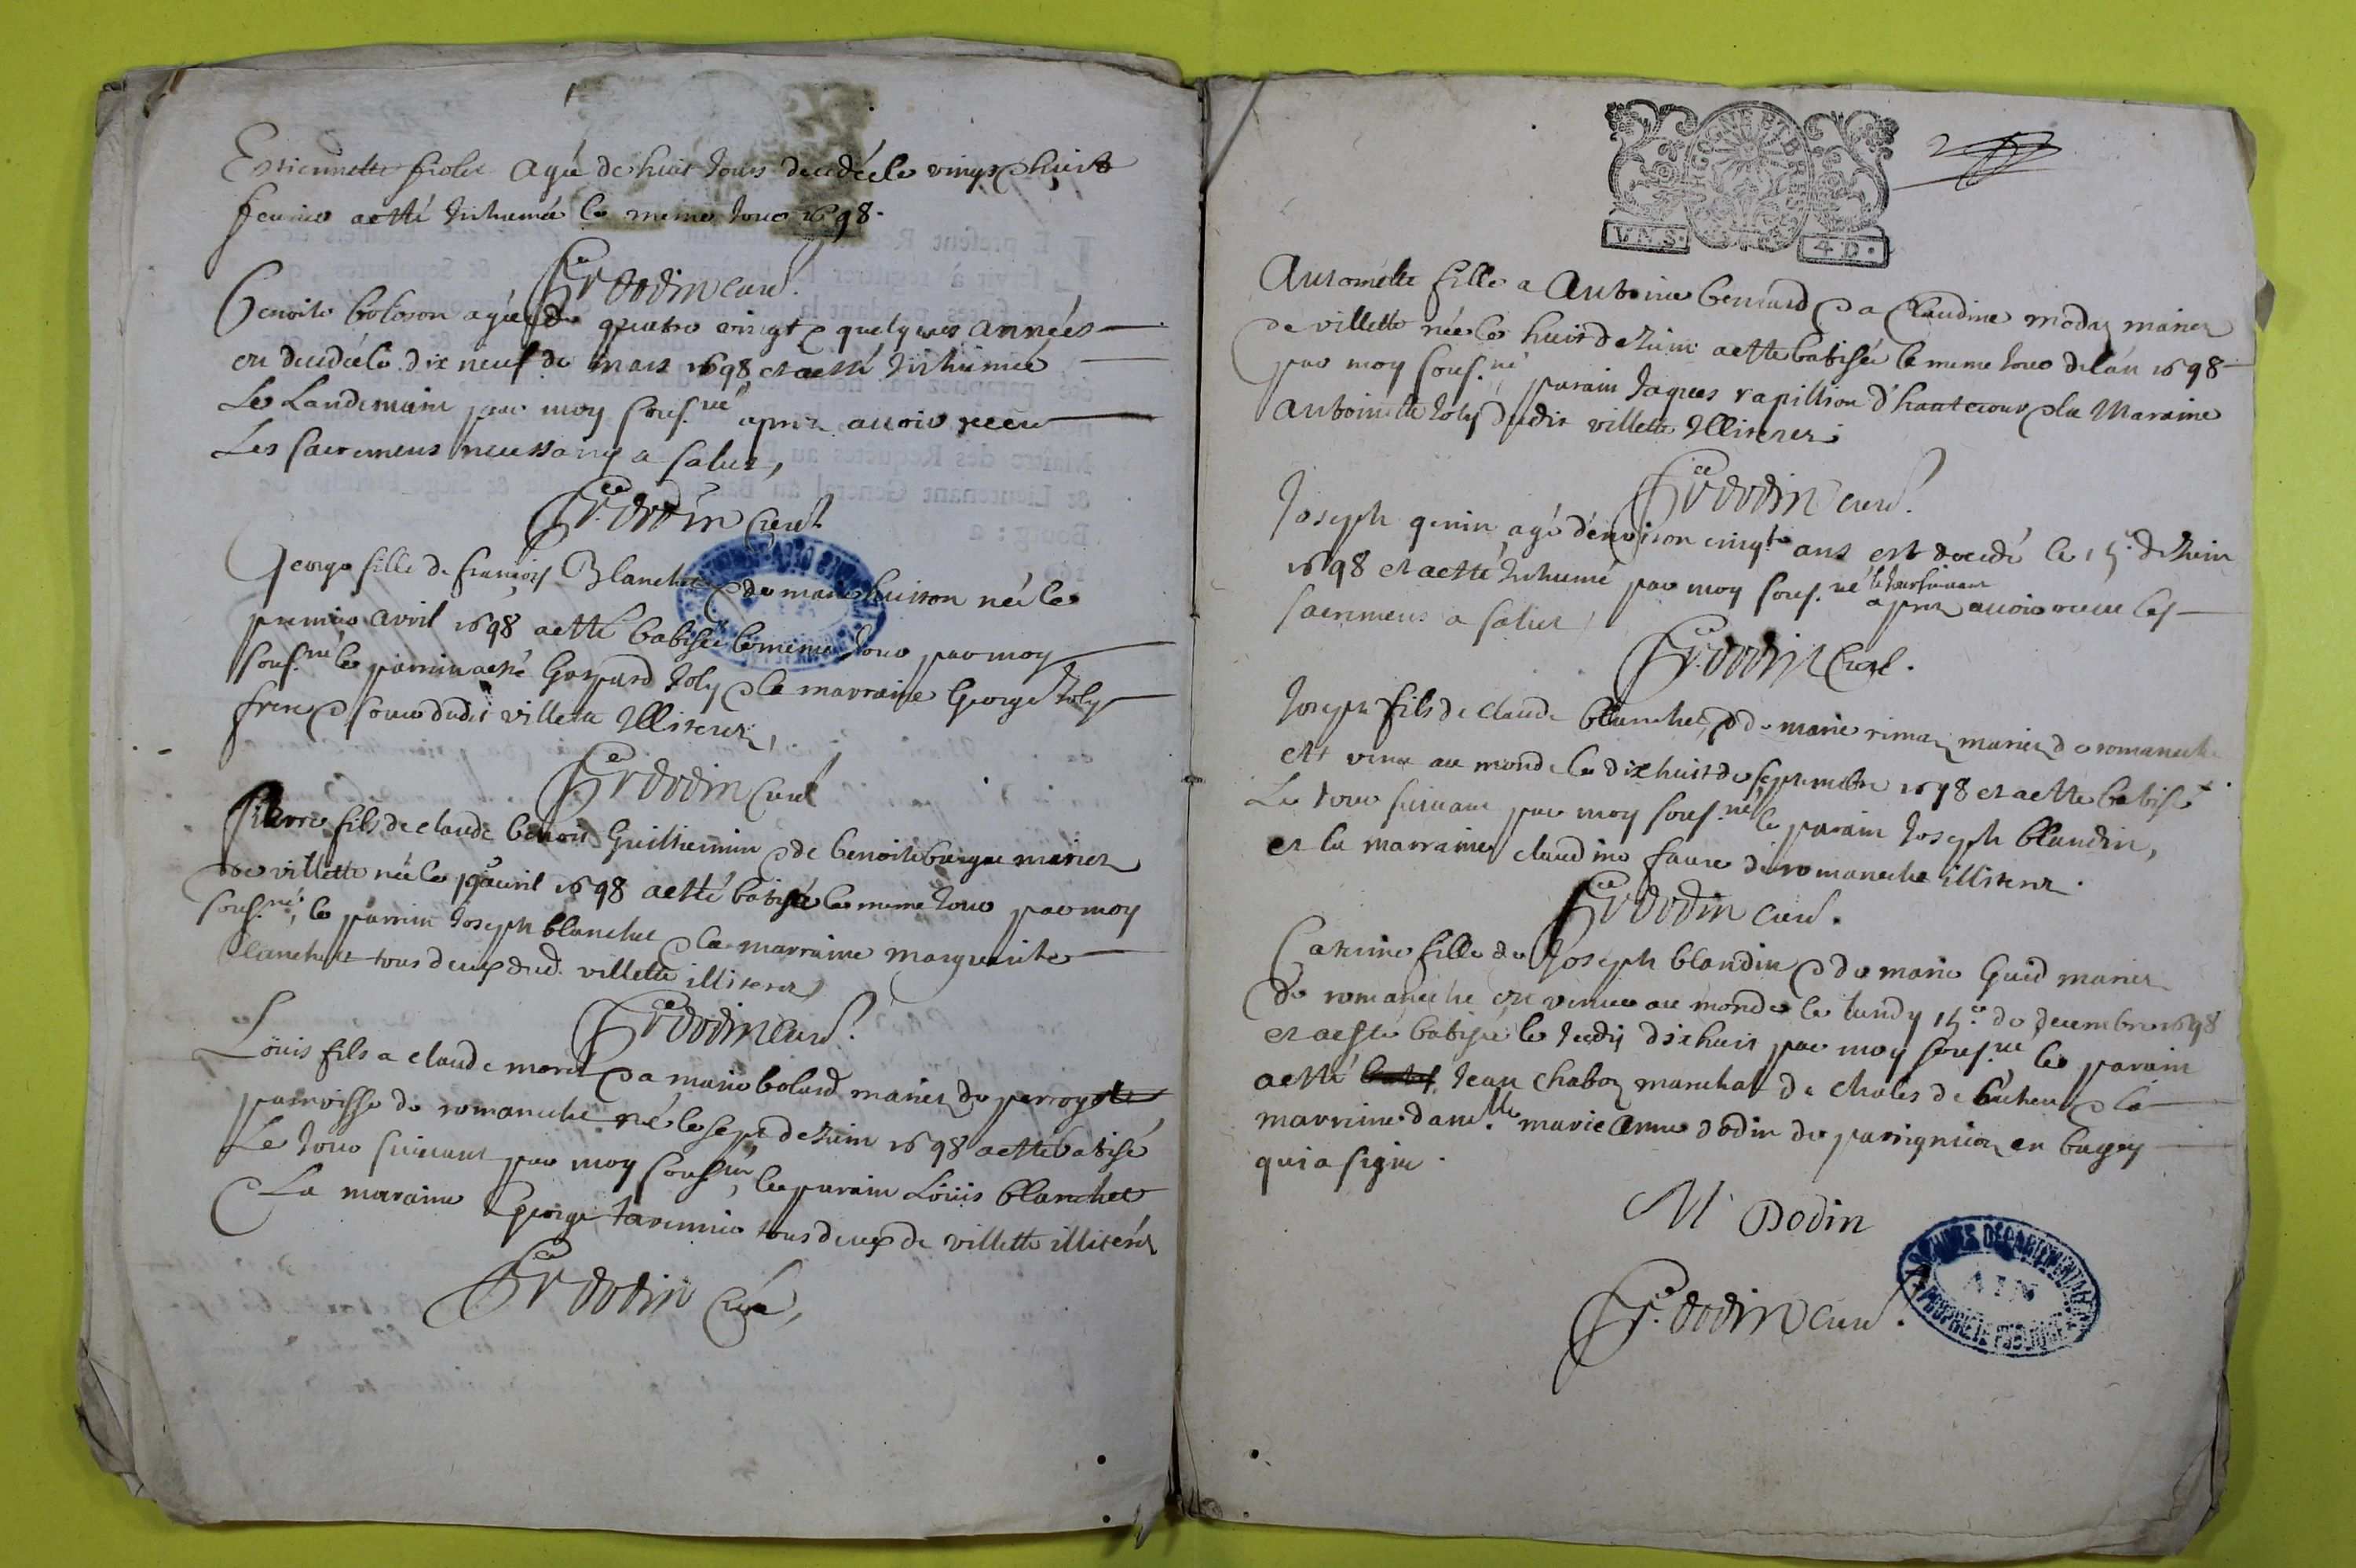 Estiennette agée de huit Jours decedée le vingt huict
feurier aetté Inhumée le meme Jour 1698.
dodin curé
Benoite agée de quatre vingt e quelques années
est decedée le dix neuf de mars 1698 et aetté Inhumée
Le Landemain par moy sous.né apres auoir receu
Les sacremens necessaires a salut,
dodin curé
George fille de françois Blanchet e de marie née le
premier avril 1698 aetté babisée le meme Jour par moy
sous.né le parrin aetté Gaspard Joly e la marraine George Joly
frere e soeur dudit villette Illiterez,
dodin curé
Pierre fils de claude benoit Guilliermin e de benoite mariez
de villette né le avril 1698 aetté babisé le meme Jour par moy
sous.né, le parrin Joseph blanchet e la marraine marguerite
blanchet tous deux dud. villette illiterez
dodin curé
Löuis fils a claude morel e a marie bolard mariez de
parroisse de romaneche né le sept de Juin 1698 aetté babisé
Le Jour suiuant par moy sousné, le parain Löuis blanchet
e La maraine George tous deux de villette illiterez
dodin curé,
GNE ET B
V.N.S.
4.D.
2
Antoinette fille a Antoine bernard e a Claudine mariez
de villette née le huit de Juin aetté babisée le meme Jour de lan 1698
par moy sous.né parain Jaques rapillion d'hautecour e la Maraine
Antoinette Joly dudit villette Illiterez
dodin curé.
Joseph genin agé denviron cinqte ans est decedé le 15.e de Juin
1698 et aetté Inhumé par moy sous.né le Jour suiuant apres auoir receu les
sacremens a salut,
dodin curé.
Joseph fils de claude blanchet, e de marie mariez de romaneche
est venu au monde le dixhuit de septembre 1698 et aetté babisé
Le Jour suiuant par moy sous.né le parain Joseph blandin,
et la marraine claudine faure de romaneche illiterez.
dodin curé.
Caterine fille de Joseph blandin e de marie Guid mariez
de romaneche est venue au monde le lundy 15.e de decembre 1698
et aesté babisée le Jeudy dixhuit par moy sous.né le parain
aetté Jean chabot marechal de e la
marrine damlle. marie Anne dodin de parrigniez en bugey
qui a signé.
M Dodin
dodin curé.
ARCHIVES DÉPARTEMENTALES
AIN
PROPRIÉTÉ PUBLIQUE